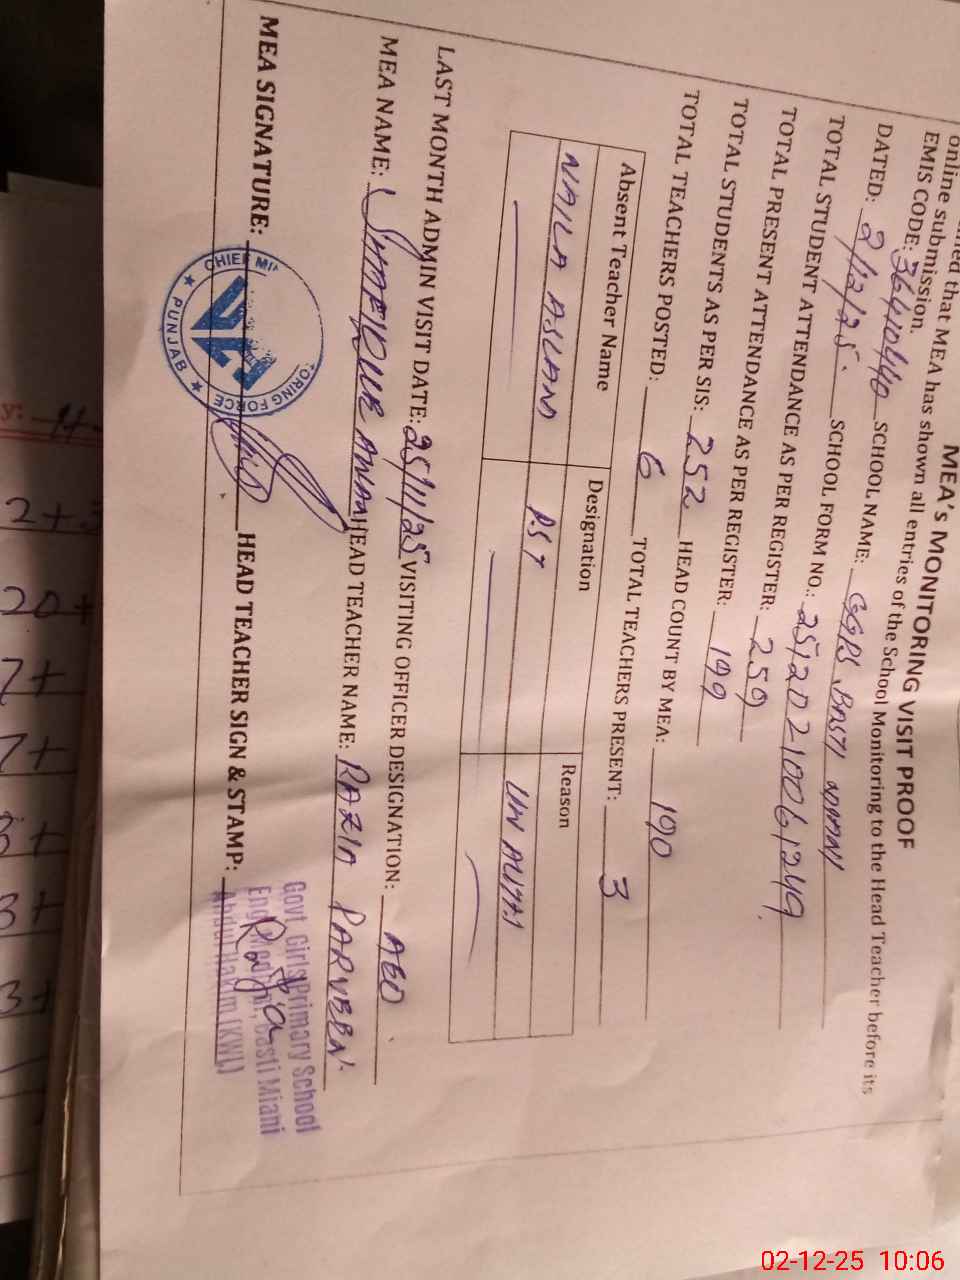 MEA's MONITORING VISIT PROOF
that MEA has shown all entries of the School Monitoring to the Head Teacher before its
online submission.
EMIS CODE: 36410440 SCHOOL NAME: GGPS BASTI
DATED: 2/12/25. SCHOOL FORM NO.: 25120210061249
TOTAL STUDENT ATTENDANCE AS PER REGISTER: 259
TOTAL PRESENT ATTENDANCE AS PER REGISTER: 199
TOTAL STUDENTS AS PER SIS: 252 HEAD COUNT BY MEA: 190
TOTAL TEACHERS POSTED: 6 TOTAL TEACHERS PRESENT: 3
Absent Teacher Name Designation Reason
NAILA ASLAM PST UN AUTH
LAST MONTH ADMIN VISIT DATE: 25/11/25 VISITING OFFICER DESIGNATION: AEO
MEA NAME: SHAFIQUE AWAN HEAD TEACHER NAME: RAZIA PARVEEN
MEA SIGNATURE: HEAD TEACHER SIGN & STAMP: Razia
CHIEF MIN ORING FORCE PUNJAB
Govt. Girls Primary School
Eng. Medium, Basti Miani
Abdul Hakim (KWL)
y: 4
2+3
20+
7+
7+
8+
8+
3+
02-12-25 10:06